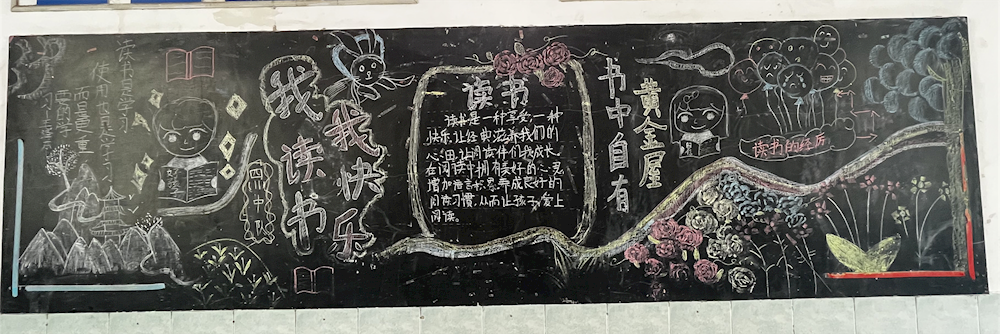 读书是学习
使用也是学习
而且是更
重要的学
习
我读书
我快乐
四(1)中队
读书
读书是一种享受,一种
快乐,让经典滋养我们的
心田,让阅读伴们我成长。
在阅读中拥有美好的心灵,
增加语言积累,养成良好的
阅读习惯,从而让孩子爱上
阅读。
书中自有
黄金屋
读书的经历